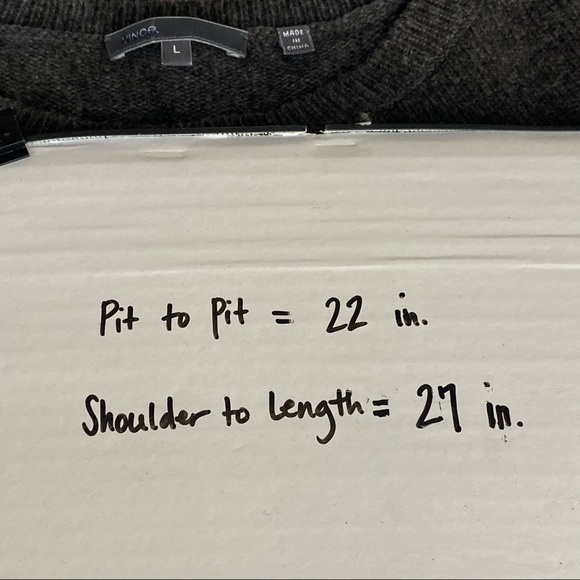 VINCE.
L
MADE
IN
CHINA
Pit to Pit = 22 in.
Shoulder to Length = 27 in.